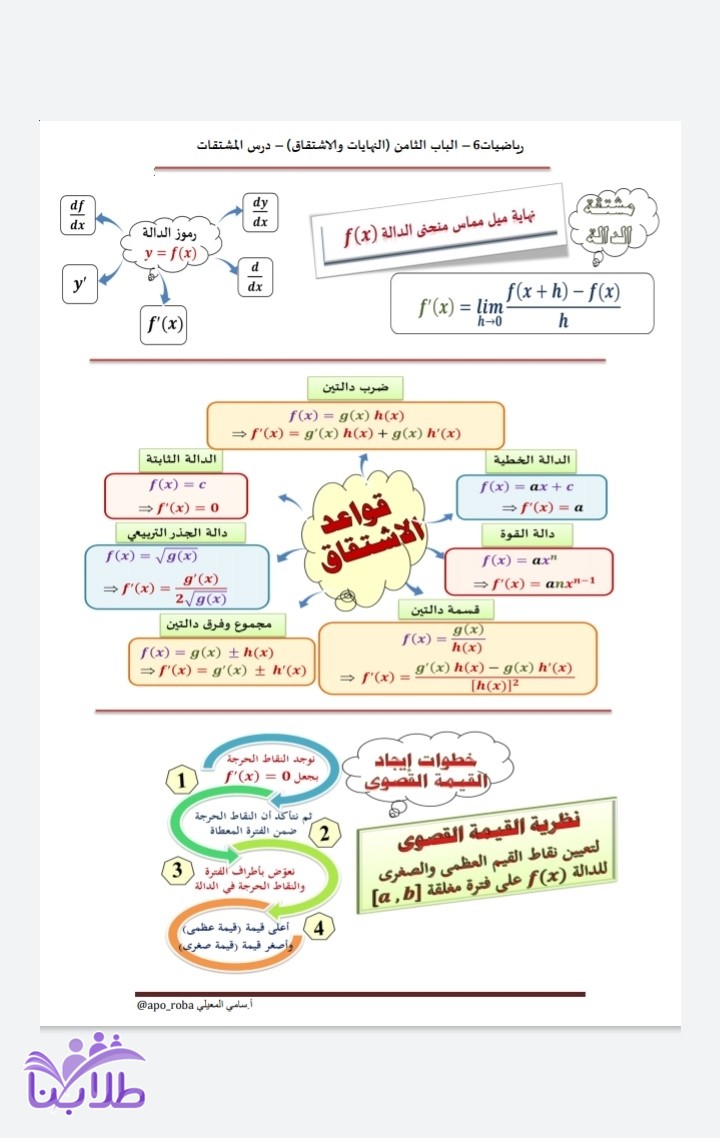 رياضيات6 – الباب الثامن (النهايات والاشتقاق) – درس المشتقات
مشتقة
الدالة
نهاية ميل مماس منحنى الدالة f(x)
f′(x) = lim h→0 f(x + h) − f(x) / h
رموز الدالة
y = f(x)
dy/dx
d/dx
f′(x)
y′
df/dx
قواعد
الاشتقاق
ضرب دالتين
f(x) = g(x) h(x)
⇒ f′(x) = g′(x) h(x) + g(x) h′(x)
الدالة الخطية
f(x) = ax + c
⇒ f′(x) = a
الدالة الثابتة
f(x) = c
⇒ f′(x) = 0
دالة القوة
f(x) = axⁿ
⇒ f′(x) = anxⁿ⁻¹
دالة الجذر التربيعي
f(x) = √g(x)
⇒ f′(x) = g′(x) / 2√g(x)
قسمة دالتين
f(x) = g(x) / h(x)
⇒ f′(x) = g′(x) h(x) − g(x) h′(x) / [h(x)]²
مجموع وفرق دالتين
f(x) = g(x) ± h(x)
⇒ f′(x) = g′(x) ± h′(x)
خطوات إيجاد
القيمة القصوى
نظرية القيمة القصوى
لتعيين نقاط القيم العظمى والصغرى
للدالة f(x) على فترة مغلقة [a , b]
1
نوجد النقاط الحرجة
بجعل f′(x) = 0
2
ثم نتأكد أن النقاط الحرجة
ضمن الفترة المعطاة
3
نعوّض بأطراف الفترة
والنقاط الحرجة في الدالة
4
أعلى قيمة (قيمة عظمى)
وأصغر قيمة (قيمة صغرى)
أ.سامي المعيلي @apo_roba
طلابنا